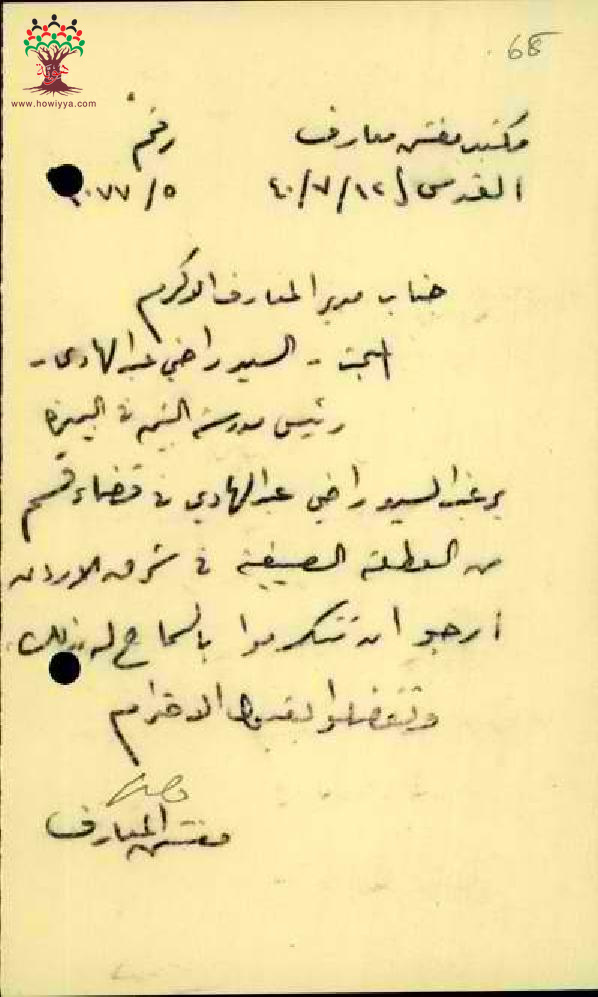 68
www.howiyya.com
مكتب مفتش معارف رقم
القدس ١٢/٧/٤٠ ٥/٢٠٧٧
جناب مدير المعارف الاكرم
المبحث - السيد راضي عبد الهادي -
رئيس مدرسة في البيرة
يرغب السيد راضي عبد الهادي في قضاء قسم
من العطلة الصيفية في شرق الاردن
أرجو ان تتكرموا بالسماح له بذلك
وتفضلوا بقبول الاحترام
مفتش المعارف